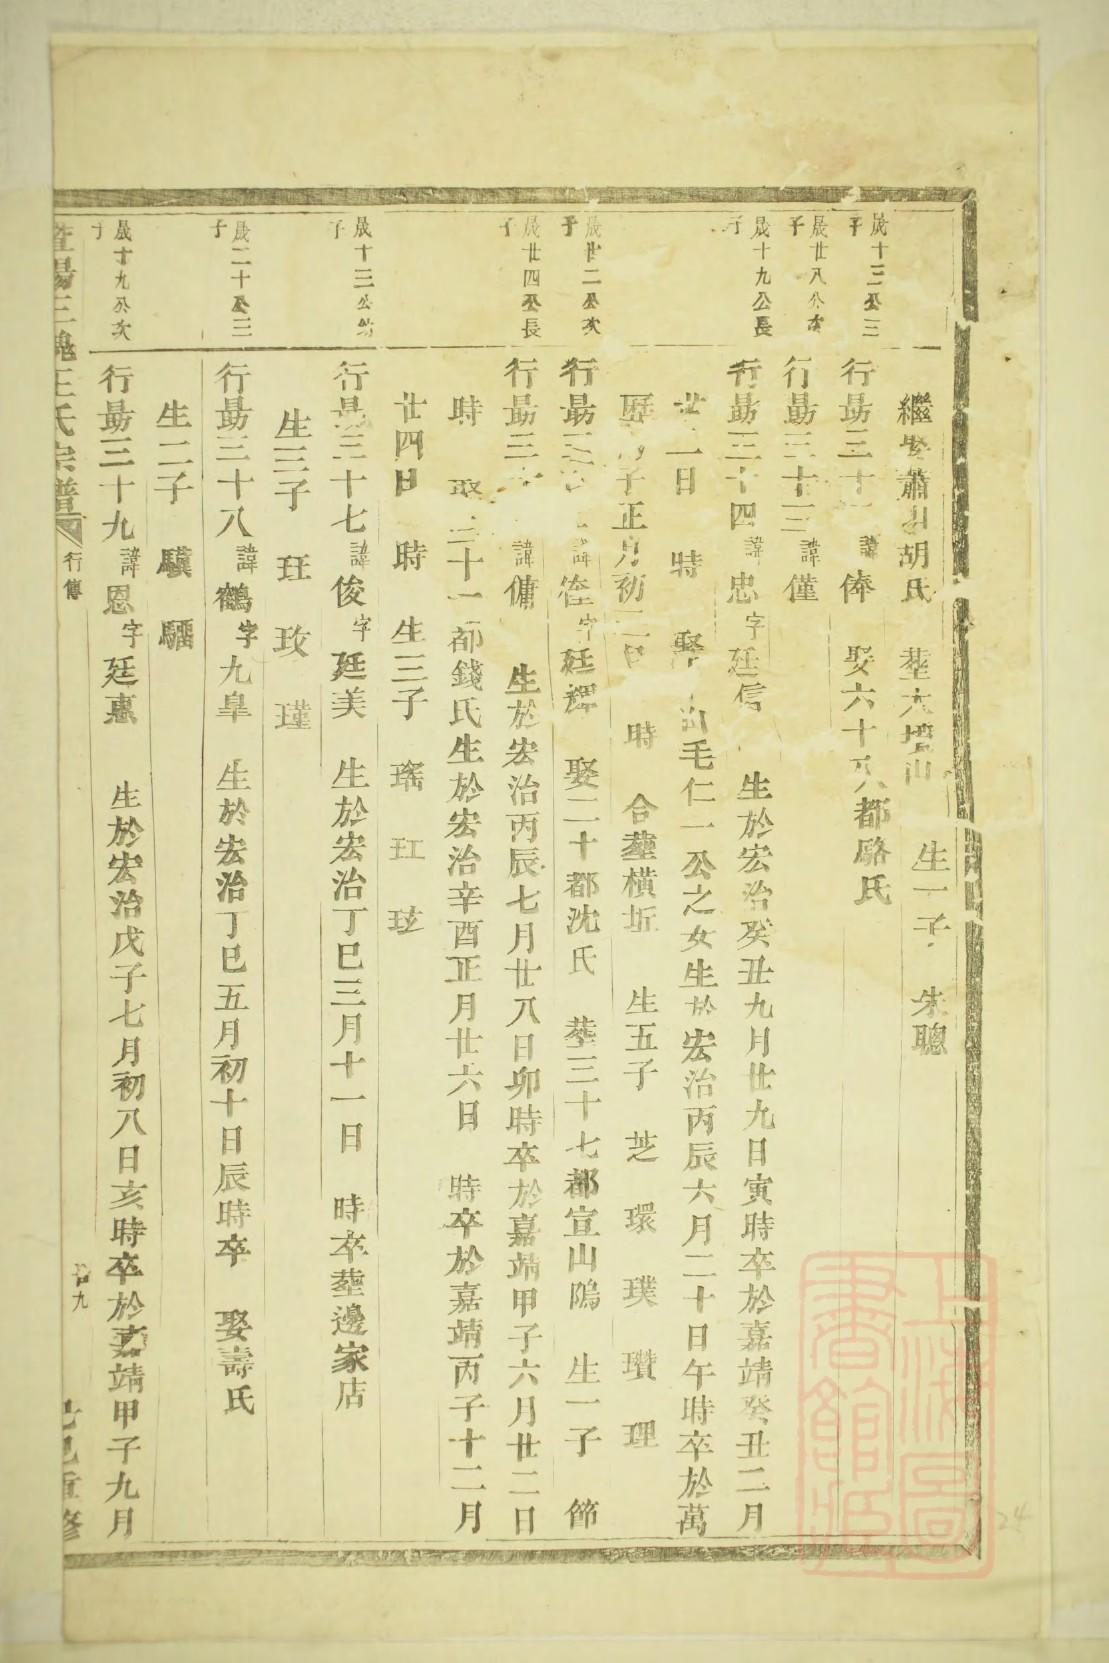 繼娶蕭山胡氏 葬大塢山 生一子 朱聰
晟十三公三子
行勗三十 諱俸 娶六十八都駱氏
晟廿八公次子
行勗三十三諱僅
晟十九公長子
行勗三十四諱忠字廷信 生於宏治癸丑九月廿九日寅時卒於嘉靖癸丑二月
廿 一日 時 娶 毛仁一公之女生於宏治丙辰六月二十日午時卒於萬
歷 子正月初二日 時 合塟橫坵 生五子 芝 環 璞 瓚 理
晟廿二公次子
行勗三 諱 字廷輝 娶二十都沈氏 塟三十七都宣山隝 生一子 節
晟廿四公長子
行勗三 諱傭 生於宏治丙辰七月廿八日卯時卒於嘉靖甲子六月廿二日
時 娶三十一都錢氏生於宏治辛酉正月廿六日 時卒於嘉靖丙子十二月
廿四日 時 生三子 瑤 玒 玹
晟十三公幼子
行勗三十七諱俊字廷美 生於宏治丁巳三月十一日 時卒塟邊家店
生三子 玨 玫 瑾
晟二十公三子
行勗三十八諱鶴字九臯 生於宏治丁巳五月初十日辰時卒 娶壽氏
生二子 驥 騮
晟十九公次子
行勗三十九諱恩字廷惠 生於宏治戊子七月初八日亥時卒於嘉靖甲子九月
暨陽三槐王氏宗譜 行傳 九 己巳重修
上海圖書館藏
24